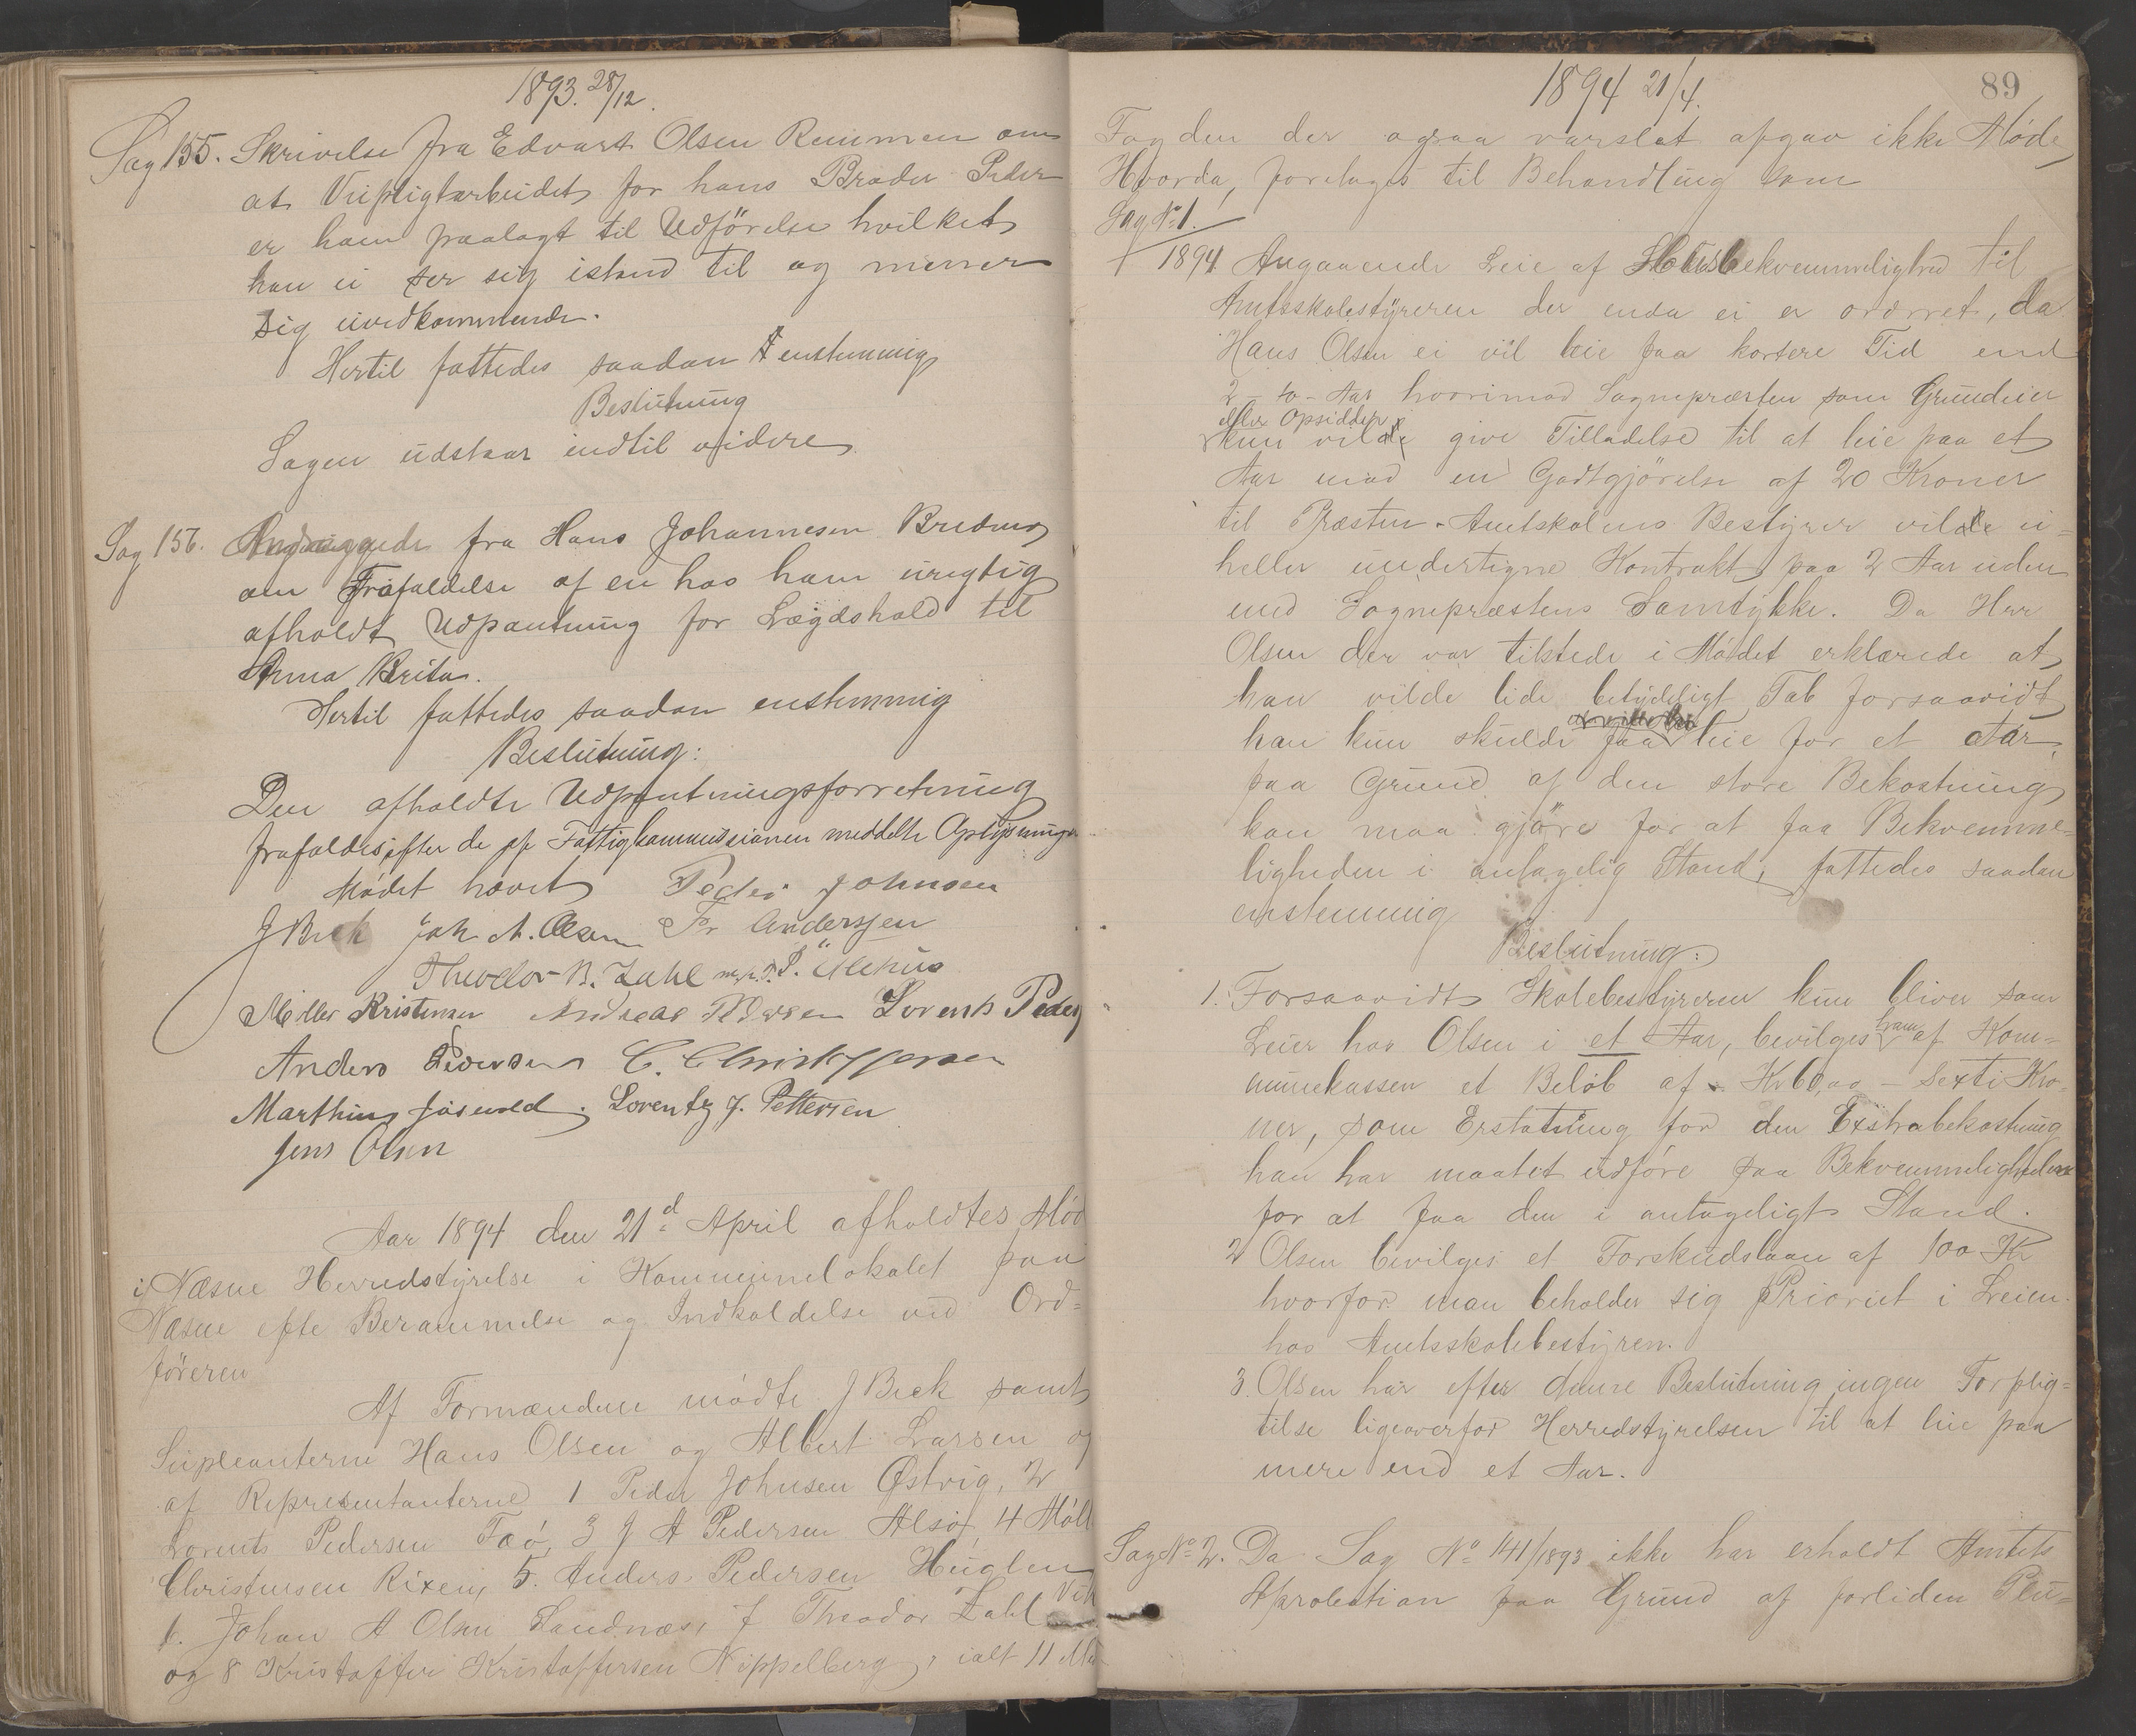 1893. 28/12.
Sag 155. Skrivelse fra Edvart Olsen Remmen om
at Veipligtarbeidet for hans Broder Peder
er ham paalagt til Udförelse hvilket
han ei ser sig istand til og mener
sig uvedkommende.
Hertil fattedes saadan enstemmig
Beslutning
Sagen udstaar indtil videre
Sag 156. fra Hans Johannesen
om Frafaldelse af en hos ham urigtig
afholdt Udpantning for Lægdshold til
Anna Brita.
Hertil fattedes saadan enstemmig
Beslutning:
Den afholdte Udpantningsforretning
frafaldes efter de af Fattigkommissionen meddelte Oplysninger
Mødet hævet Peder Johnsen
J Beck Joh A. Olsen Fr Anderssen
Theodor B. Zahl
Møller Kristensen Andreas Lorents Peders
Anders Pedersen C. Christoffersen
Marthin Lorentz J. Pettersen
Jens Olsen
Aar 1894 den 21d April afholdtes Mød
i Næsne Herredstyrelse i Kommunelokalet paa
Næsne efte Berammelse og Indkaldelse ved Ord=
föreren
Af Formændene mødte J Beck samt
Supleanterne Hans Olsen og Albert Larsen og
af Representanterne 1 Peder Johnsen Østvig, 2
Lorents Pedersen 3 J A Pedersen Alsø, 4 Møll
Christensen 5. Anders Pedersen Huglen
6. Johan A Olsen Sandnæs, 7 Theodor Zahl Vik
og 8 Kristoffer Kristoffersen Nippelberg, ialt 11
1894 21/4.
89
Fogden der ogsaa varslet afgav ikke Møde
Hvorda, foretages til Behandling som
Sag No 1.
1894 Angaaende Leie af Husbekvemmelighed til
Amtsskolestyreren der enda ei er ordnet, da
Hans Olsen ei vil leie paa kortere Tid end
2 - to - Aar hvorimod Sognepræsten som Grundeier
eller Opsidder
kun vilde give Tilladelse til at leie paa et
Aar mod en Godtgjörelse af 20 Kroner
til Præsten. Amtskolens Bestyrer vilde ei=
heller undertegne Kontrakt paa 2 Aar uden
med Sognepræstens Samtykke. Da Herr
Olsen der var tilstede i Mødet erklærede at
han vilde lide betydeligt Tab forsaavidt
han kun skulde faa leie for et Aar,
paa Grund af den store Bekostning
han maa gjöre for at faa Bekvemme=
ligheden i antagelig Stand, fattedes saadan
enstemmig
Beslutning:
1. Forsaavidt Skolebestyreren kun bliver som
Leier hos Olsen i et Aar, bevilges ham af Kom=
munekassen et Beløb af Kr 60,00 - Sexti Kro=
ner, som Erstatning for den Extrabekostning
han har maatet udføre paa Bekvemmeligheden
for at faa den i antageligt Stand.
2 Olsen bevilges et Forskudslaan af 100 Kr
hvorfor man beholder sig Prioritet i Leien
hos Amtsskolebestyren.
3. Olsen har efter denne Beslutning ingen Forplig=
tilse ligeoverfor Herredstyrelsen til at leie paa
mere end et Aar.
Sag No 2. Da Sag No 141/1893 ikke har erholdt Amtets
Aprobation paa Grund af forliden